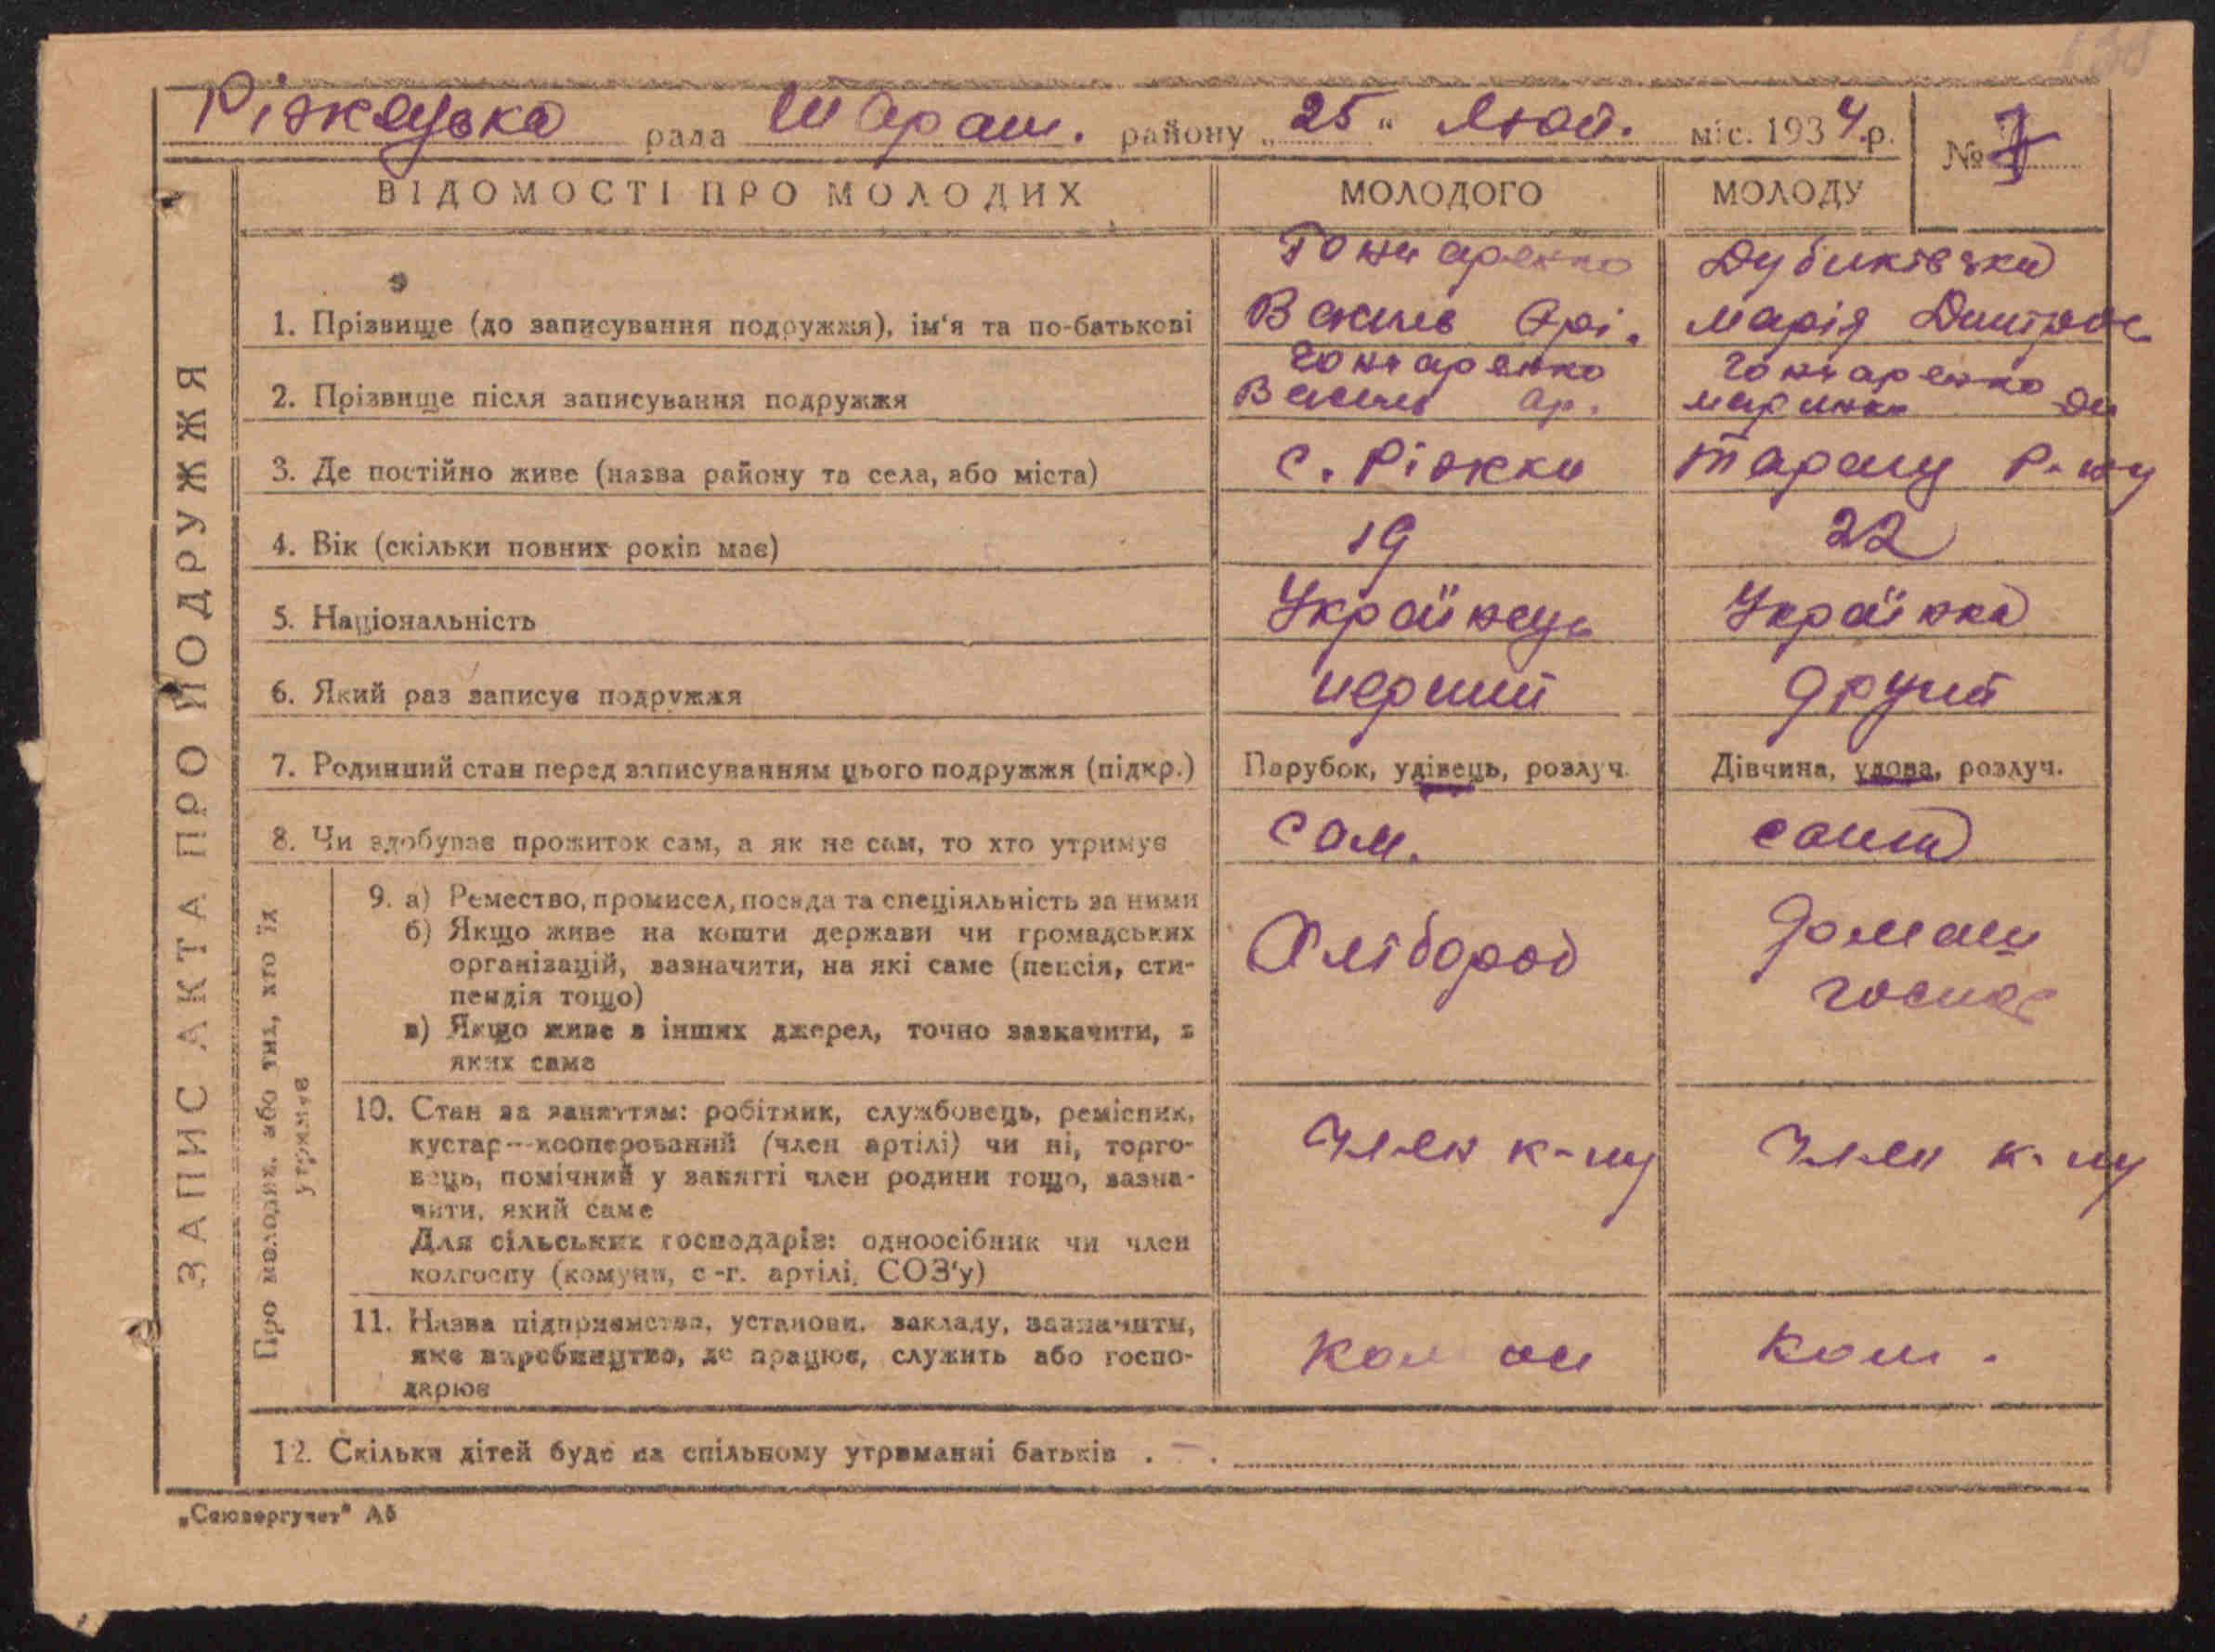 138
Ріжкцька рада Тараш. району „ 25 “ Лют. міс. 1934.р. № 7
ВІДОМОСТІ ПРО МОЛОДИХ МОЛОДОГО МОЛОДУ
Гончаренко
1. Прізвище (до записування подружжя), ім'я та по-батькові Василь Арі.
Марія Дмитров
2. Прізвище після записування подружжя Гончаренко Василь Ар. Гончаренко
3. Де постійно живе (назва району та села, або міста) с. Ріжки Таращ р-ну
4. Вік (скільки повних років має) 19 22
5. Національність Українець Українка
6. Який раз записує подружжя перший другий
7. Родинний стан перед записуванням цього подружжя (підкр.) Парубок, удівець, розлуч. Дівчина, удова, розлуч.
8. Чи здобуває прожиток сам, а як не сам, то хто утримує сам. сама
9. а) Ремество, промисел, посада та спеціяльність за ними
б) Якщо живе на кошти держави чи громадських
організацій, зазначити, на які саме (пенсія, сти-
пендія тощо)
в) Якщо живе з інших джерел, точно зазначити, з
яких саме
Хлібороб
домаш
госпо
10. Стан за заняттям: робітник, службовець, ремісник,
кустар—кооперований (член артілі) чи ні, торго-
вець, помічний у занятті член родини тощо, зазна-
чити, який саме
Для сільських господарів: одноосібник чи член
колгоспу (комуни, с-г. артілі, СОЗ'у)
Член к-пу Член к-пу
11. Назва підприємства, установи, закладу, зазначити,
яке виробництво, де працює, служить або госпо-
дарює
12. Скільки дітей буде на спільному утриманні батьків . – .
„Союзоргучет" А5
ЗАПИС АКТА ПРО ПОДРУЖЖЯ
Про молодих, або тих, хто їх
утримує